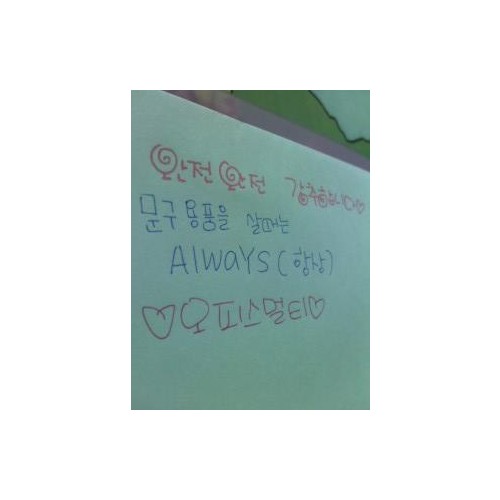 완전완전 강추합니다♡
문구용품을 살때는
Always(항상)
♡오피스멀티♡